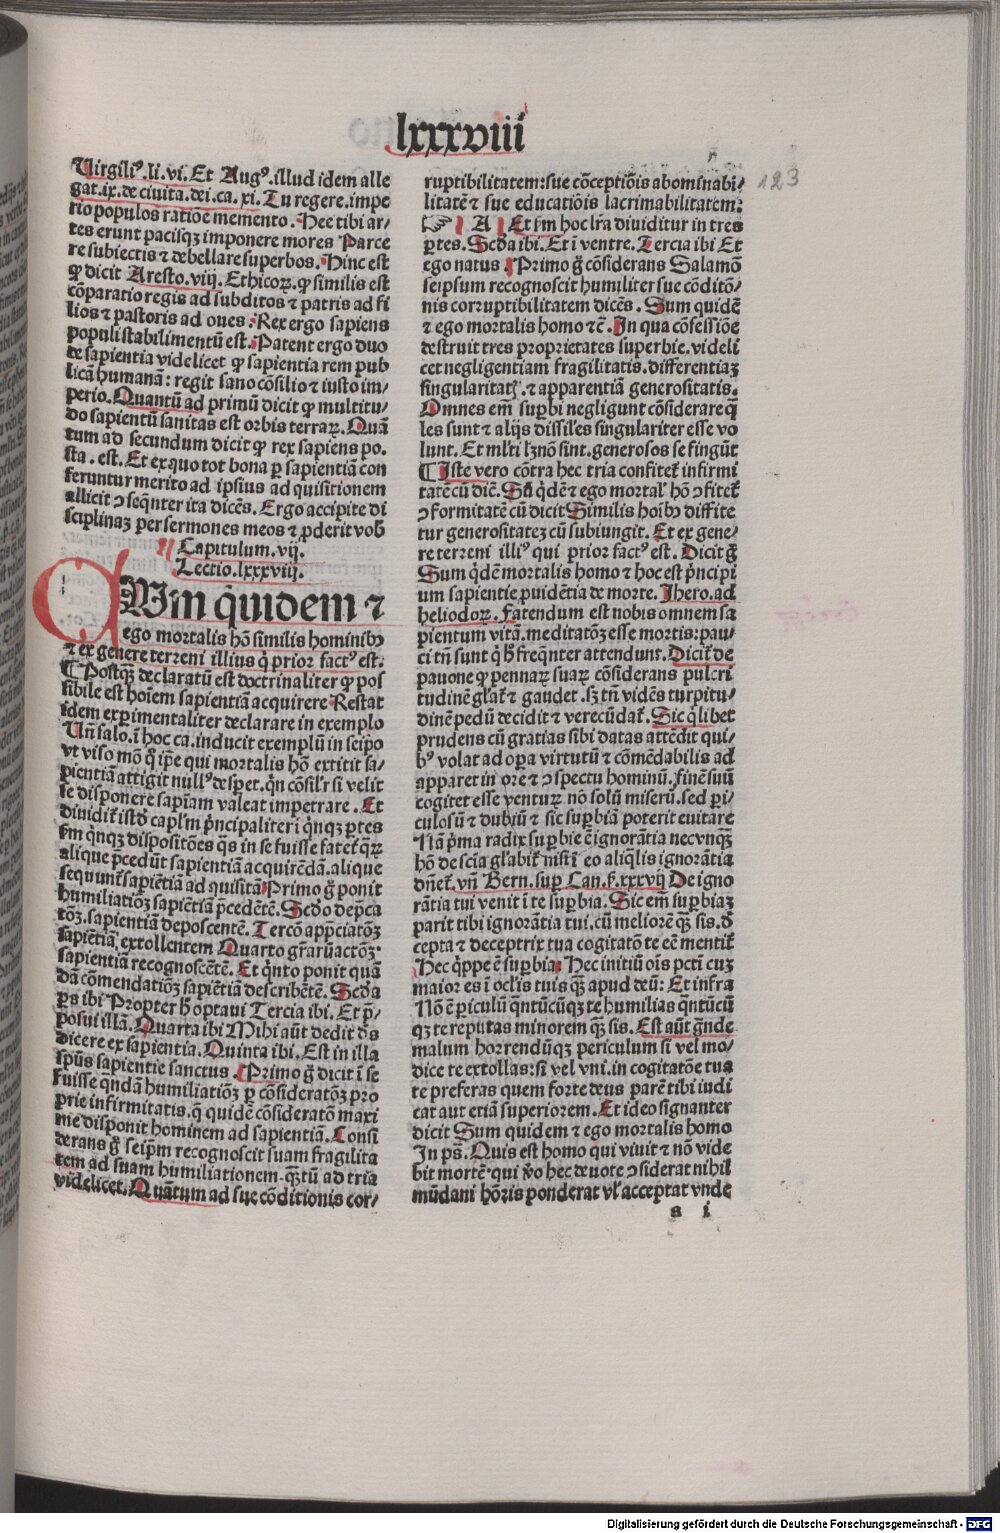 lxxxviii
123
Virgiliꝰ.li.vi. Et Augꝰ.illud idem alle
gat.ix.de ciuita.dei.ca.xi. Tu regere.impe
rio populos ratiōe memento. Hee tibi ar-
tes erunt pacisqꝫ imponere mores Parce
re subiectis ⁊ debellare superbos. Hinc est
ꝙ dicit Aresto.viij. Ethicoꝝ. ꝙ similis est
cōparatio regis ad subditos ⁊ patris ad fi
lios ⁊ pastoris ad oues: Rex ergo sapiens
populi stabilimentū est. Patent ergo duo
de sapientia videlicet ꝙ sapientia rem pub
licā humanā: regit sano cōsilio ⁊ iusto im-
perio. Quantū ad primū dicit ꝙ multitu-
do sapientū sanitas est orbis terraꝝ. Quā
tum ad secundum dicit ꝙ rex sapiens po.
sta. est. Et ex quo tot bona ꝑ sapientiā con
feruntur merito ad ipsius ad quisitionem
allicit ꝯseqn̄ter ita dicēs. Ergo accipite di
sciplinaꝫ per sermones meos ⁊ ꝓderit vob̄
Capitulum.vij.
Lectio.lxxxviij.
SVm q̄uidem ⁊
ego mortalis hō similis hominibꝰ
⁊ ex genere terreni illius q̄ prior factꝰ est.
¶ Postqꝫ declaratū est doctrinaliter ꝙ pos
sibile est hoīem sapientiā acquirere Restat
idem exꝑimentaliter declarare in exemplo
Vn̄ salo.ī hoc ca.inducit exemplū in seipo
vt viso mō q̄ ip̄e qui mortalis hō extitit sa-
pientiā attigit nullꝰ desꝑet. qn̄ cōsilr̄ si velit
se disponere sapiam valeat impetrare. Et
diuidit̄ istd̄ capl̄m p̄ncipaliter i qn̄qꝫ ꝑtes
fm̄ qn̄qꝫ dispositōes q̄s in se fuisse fatet̄ qꝝ
alique p̄cedūt sapientiā acquirēdā. alique
sequunt̄ sapiētiā ad quisitā Primo ḡ ponit
humiliatiōꝫ sapiētiā p̄cedētē. Scdo dep̄ca
tōꝫ. sapientiā deposcentē. Tercō app̄ciatōꝫ
sapiētiā extollentem Quarto gr̄aꝝ actōꝫ
sapientiā recognoscētē. Et qn̄to ponit quā
dā cōmendatiōꝫ sapiētiā describētē. Scd̄a
ꝑs ibi Propter h̄ optaui Tercia ibi. Et p̄-
posui illā. Quarta ibi Mihi aūt dedit d̄s
dicere ex sapientia. Quinta ibi. Est in illa
sp̄us sapientie sanctus. Primo ḡ dicit ī se
fuisse qn̄dā humiliatiōꝫ ꝑ cōsideratōꝫ pro
prie infirmitatis. q̄ quidē cōsideratō maxi
me disponit hominem ad sapientiā. Consi
derans ḡ seip̄m recognoscit suam fragilita
tem ad suam humiliationem. qꝫtū ad tria
videlicet. Quātum ad sue cōditionis cor-
ruptibilitatem: sue cōceptiōis abominabi-
litatē ⁊ sue educatiōis lacrimabilitatem:
A Et fm̄ hoc lr̄a diuiditur in tres
ꝑtes. Scd̄a ibi. Et ī ventre. Tercia ibi Et
ego natus. Primo ḡ cōsiderans Salamō
seipsum recognoscit humiliter sue cōditō-
nis corruptibilitatem dicēs. Sum quidē
⁊ ego mortalis homo ⁊c̄. In qua cōfessiōe
destruit tres proprietates superbie. videli
cet negligentiam fragilitatis. differentiaꝫ
singularitatꝭ. ⁊ apparentiā generositatis.
Omnes em̄ suꝑbi negligunt cōsiderare q̄
les sunt ⁊ alijs dissiles singulariter esse vo
lunt. Et ml̄ti lꝫ nō sint. generosos se fingūt
¶ Iste vero cōtra hec tria confitet̄ infirmi
tatē cū dic̄. Sū q̄dē ⁊ ego mortal̄ hō ꝯfitet̄
ꝯformitatē cū dicit Similis hoībꝰ diffite
tur generositateꝫ cū subiungit. Et ex gene-
re terreni illiꝰ qui prior factꝰ est. Dicit ḡ
Sum q̄dē mortalis homo ⁊ hoc est p̄ncipi
um sapientie ꝓuidētia de morte. Ihero. ad
heliodoꝝ. Fatendum est nobis omnem sa
pientum vitā. meditatōꝫ esse mortis: pau-
ci tn̄ sunt q̄ h̄ freqn̄ter attendunt. Dicit̄ de
pauone ꝙ pennaꝝ suaꝝ cōsiderans pulcri
tudinē gl̄at̄ ⁊ gaudet. sꝫ tn̄ vidēs turpitu-
dinē pedū decidit ⁊ verecūdat̄. Sic q̄libet
prudens cū gratias sibi datas attēdit qui-
bꝰ volat ad oꝑa virtutū ⁊ cōmēdabilis ad
apparet in ore ⁊ ꝯspectu hominū. finē suū
cogitet esse venturꝫ nō solū miserū. sed ꝑi-
culosū ⁊ dubiū ⁊ sic suꝑbiā poterit euitare
Nā p̄ma radix suꝑbie ē ignorātia nec vnqꝫ
hō de scīa gl̄abit̄ nisi ī eo aliq̄lis ignorātia
dn̄et̄. vn̄ Bern. suꝑ Can. ẜ. xxxvij De igno
rātia tui venit ī te suꝑbia. Sic em̄ suꝑbiaꝫ
parit tibi ignorātia tui. cū meliorē qꝫ sis. d̄
cepta ⁊ deceptrix tua cogitatō te eē mentit̄
Hec q̄ppe ē suꝑbia: Hec initiū oīs pctī cuꝫ
maior es ī oclis tuis qꝫ apud deū: Et infra
Nō ē ꝑiculū qn̄tūcūqꝫ te humilias qn̄tūcū
qꝫ te reputas minorem qꝫ sis. Est aūt gn̄de
malum horrendūqꝫ periculum si vel mo-
dice te extollas: si vel vni. in cogitatōe tua
te preferas quem forte deus parē tibi iudi
cat aut etiā superiorem. Et ideo signanter
dicit Sum quidem ⁊ ego mortalis homo
In ps̄. Quis est homo qui viuit ⁊ nō vide
bit mortē. qui v̄o hec deuote ꝯsiderat nihil
mūdani hōris ponderat vl̓ acceptat vnde
s i
Digitalisierung gefördert durch die Deutsche Forschungsgemeinschaft - DFG